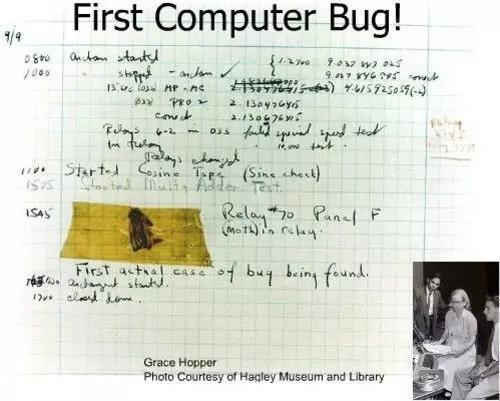 First Computer Bug!
9/9
0800 antan started
1000 " stopped - antan ✓ { 1.2700 9.037 847 025
9.037 846 995 conect
13"uc (032) MP - MC 2.130476415 (-3) 4.615925059(-2)
(033) PRO 2 2.130476415
conect 2.130676415
Relays 6-2 in 033 failed special speed test
in relay " 10.000 test.
Relays changed
1100 Started Cosine Tape (Sine check)
1525 Started Multi Adder Test.
1545 Relay #70 Panel F
(moth) in relay.
First actual case of bug being found.
antangent started.
1700 closed down.
Grace Hopper
Photo Courtesy of Hagley Museum and Library